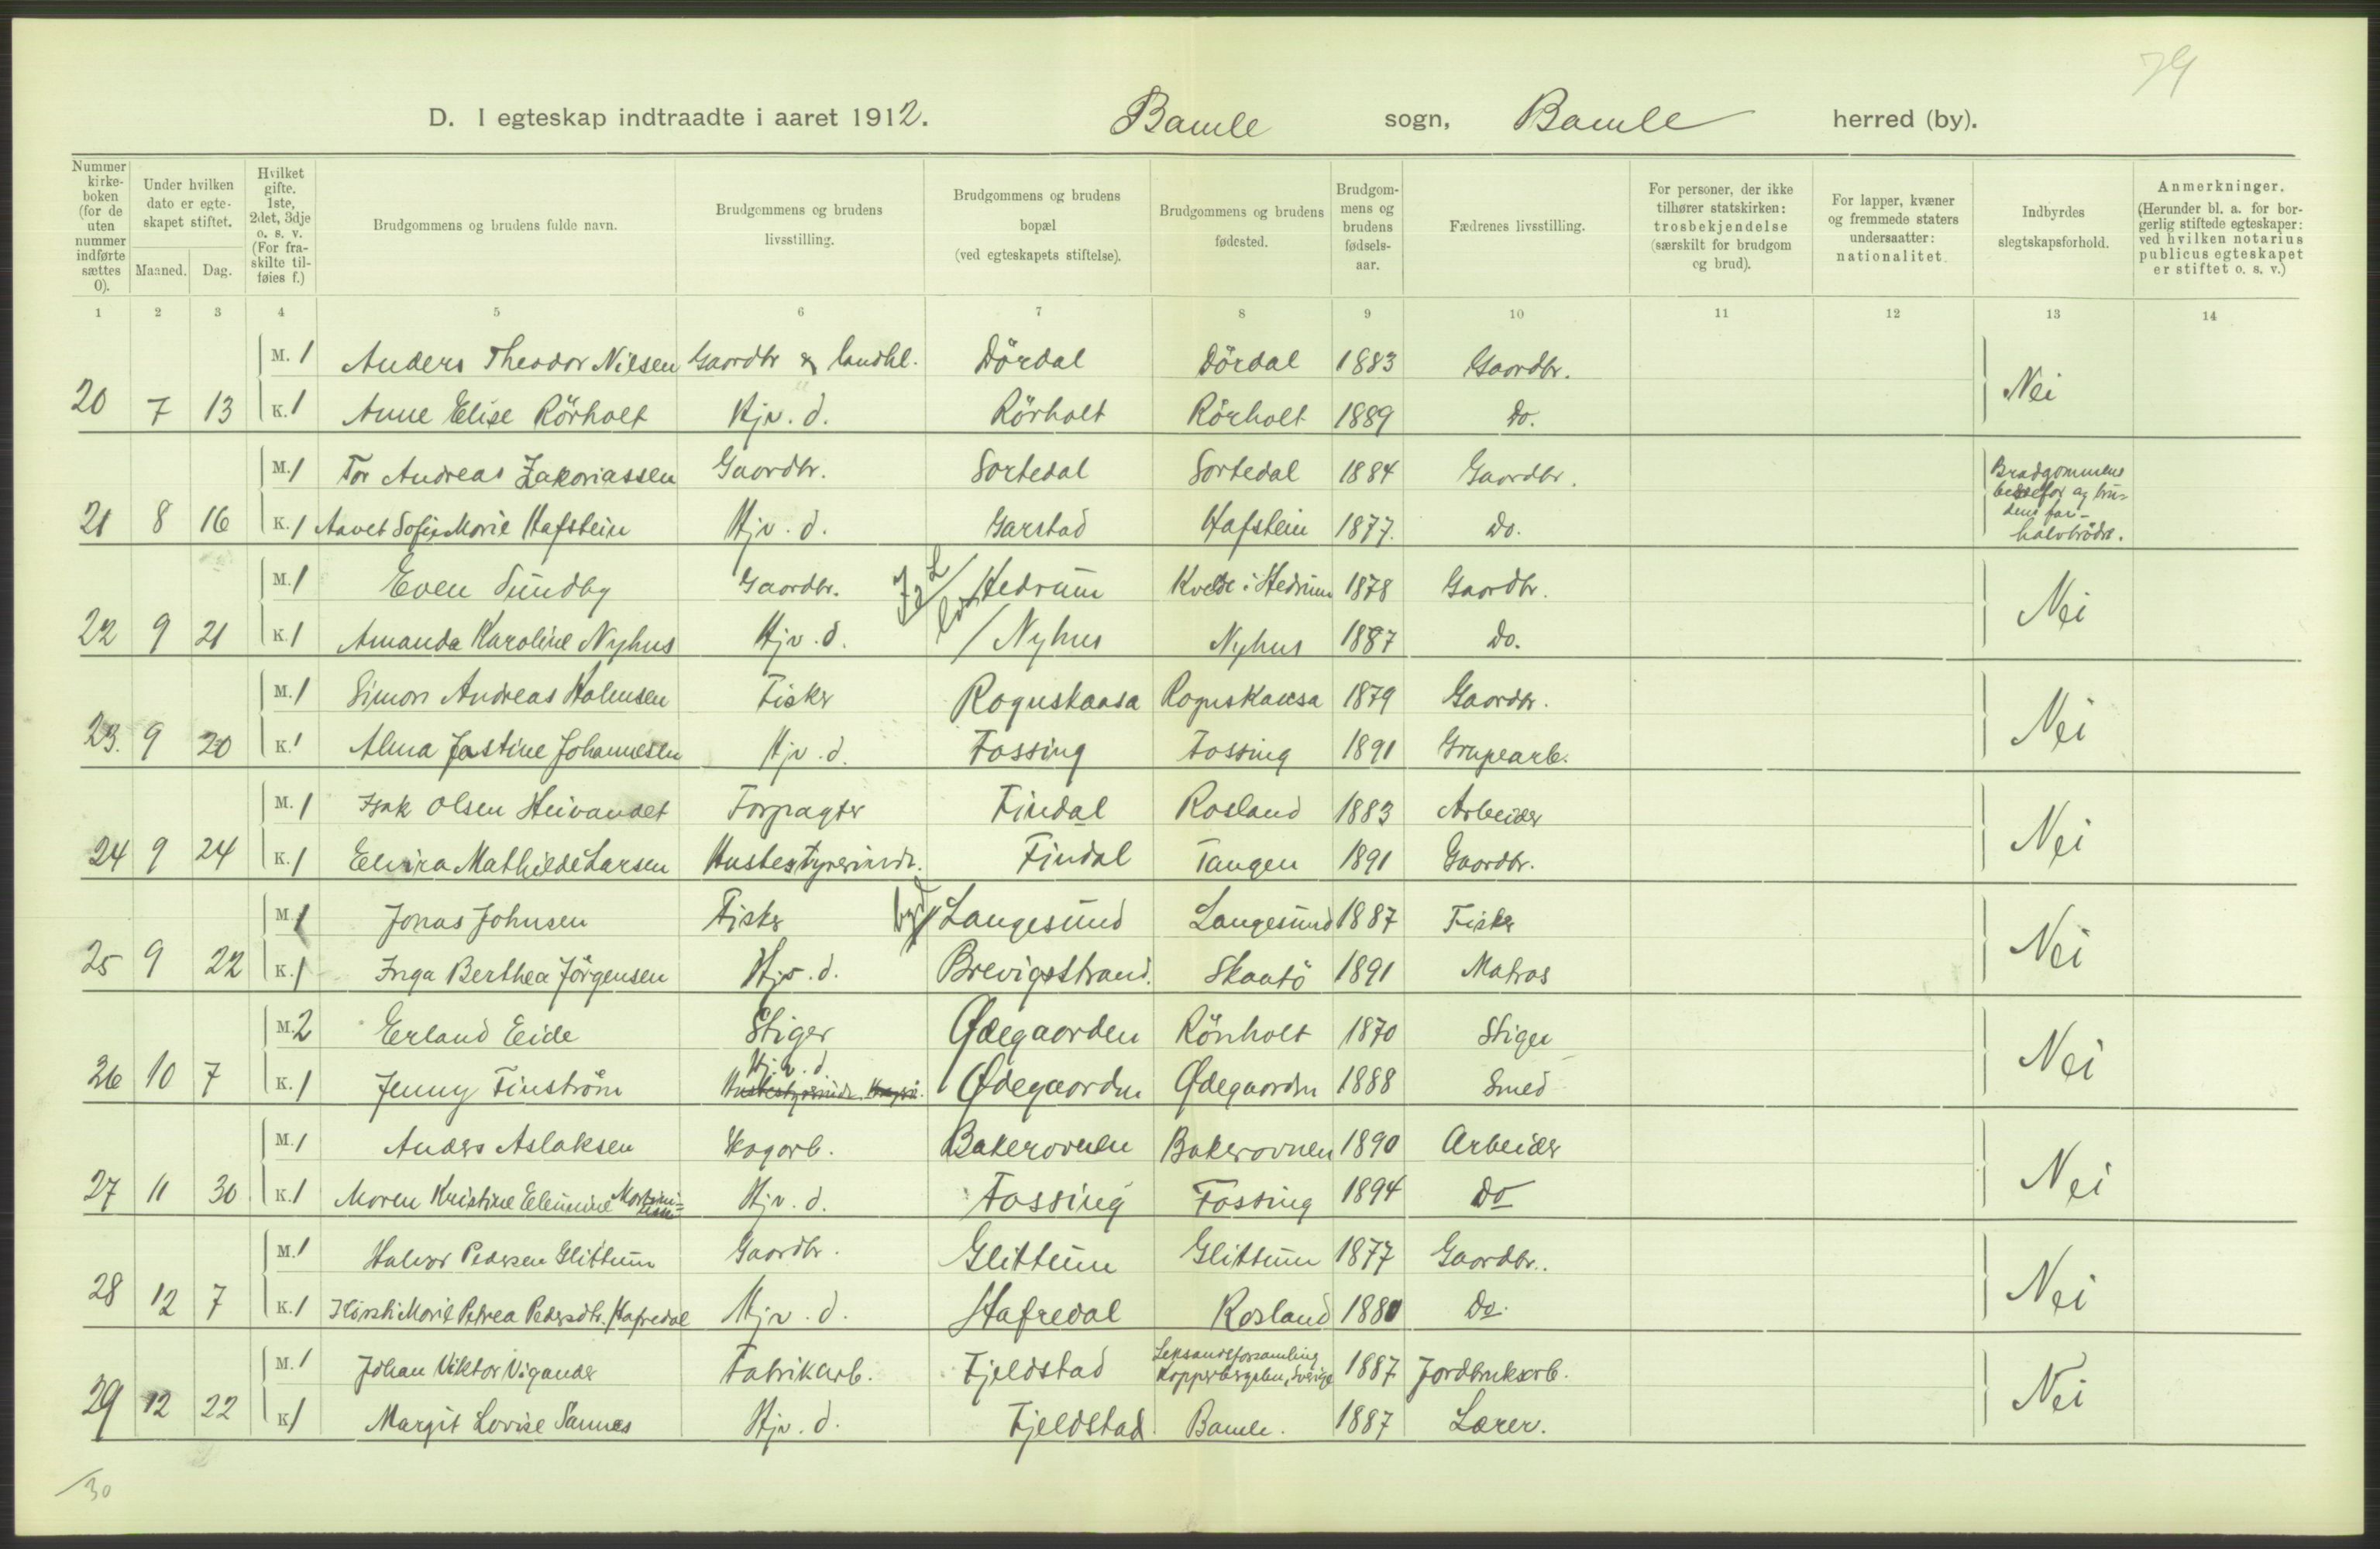 79
D. I egteskap indtraadte i aaret 1912. Bamle sogn, Bamle herred (by).
Nummer kirke-boken (for de uten nummer indførte sættes 0). Under hvilken dato er egte-skapet stiftet. Maaned. Dag. Hvilket gifte. 1ste, 2det, 3dje o. s. v. (For fra-skilte til-føies f.) Brudgommens og brudens fulde navn. Brudgommens og brudens livsstilling. Brudgommens og brudens bopæl (ved egteskapets stiftelse). Brudgommens og brudens fødested. Brudgom-mens og brudens fødsels-aar. Fædrenes livsstilling. For personer, der ikke tilhører statskirken: trosbekjendelse (særskilt for brudgom og brud). For lapper, kvæner og fremmede staters undersaatter: nationalitet. Indbyrdes slegtskapsforhold. Anmerkninger. (Herunder bl. a. for bor-gerlig stiftede egteskaper: ved hvilken notarius publicus egteskapet er stiftet o. s. v.)
1 2 3 4 5 6 7 8 9 10 11 12 13 14
M. 1 Anders Theodor Nilsen Gaardbr & landhl. Dördal Dördal 1883 Gaardbr.
20 7 13 K. 1 Anne Elise Rörholt Hjv. d. Rörholt Rörholt 1889 Do. Nei
M. 1 Tor Andreas Zakariassen Gaardbr. Sortedal Sortedal 1884 Gaardbr.
21 8 16 K. 1 Aavet Sofie Marie Hafstein Hjv. d. Garstad Hafstein 1877. Do. Brudgommens bedstefar og bru-dens far- halvbrödre.
M. 1 Even Sundby Gaardbr. Hedrum Kvelde i Hedrum 1878 Gaardbr.
22 9 21 K. 1 Amanda Karoline Nyhus Hjv. d. / Nyhus Nyhus 1887 Do. Nei
M. 1 Simon Andreas Halmsen Fisker Rognskaasa Rognskaasa 1879 Gaardbr.
23. 9 20 K. 1 Alma Jostine Johannesen Hjv. d. Fossing Fossing 1891 Grupearb. Nei
M. 1 Isak Olsen Heivandet Forpagter Findal Rosland 1883 Arbeider
24 9 24 K. 1 Elvira Mathilde Larsen Hustestyrerinde. Findal Tangen 1891 Gaardbr. Nei
M. 1 Jonas Johnsen Fisker by / Langesund Langesund 1887 Fisker
25 9 22 K. 1 Inga Berthea Jörgensen Hjv. d. Brevigsstrand. Skaatö 1891 Matros Nei
M. 2 Erland Eide Stiger Ødegaarden Rönholt 1870 Stiger
26 10 7 K. 1 Jenny Finström Hjv. d. Ødegaarden Ødegaarden 1888 Smed Nei
M. 1 Anders Aslaksen Skogarb. Bakerovnen Bakerovnen 1890 Arbeider
27 11 30 K. 1 Maren Kristine Elenmine Hjv. d. Fossing Fossing 1894 Do Nei
M. 1 Halvor Pedersen Glittum Gaardbr. Glittum Glittum 1877 Gaardbr.
28 12 7 K. 1 Marie Petrea Pedersdtr. Hafredal Hjv. d. Hafredal Rosland 1880 Do. Nei
M. 1 Johan Viktor Vigander Fabrikarb. Fjeldstad Leksandsforsamling Kopperbergslen, Sverige 1887 Jordbruksarb.
29 12 22 K 1 Margit Lovise Sannes Hjv. d. Fjeldstad Bamle. 1887 Lærer. Nei
/30